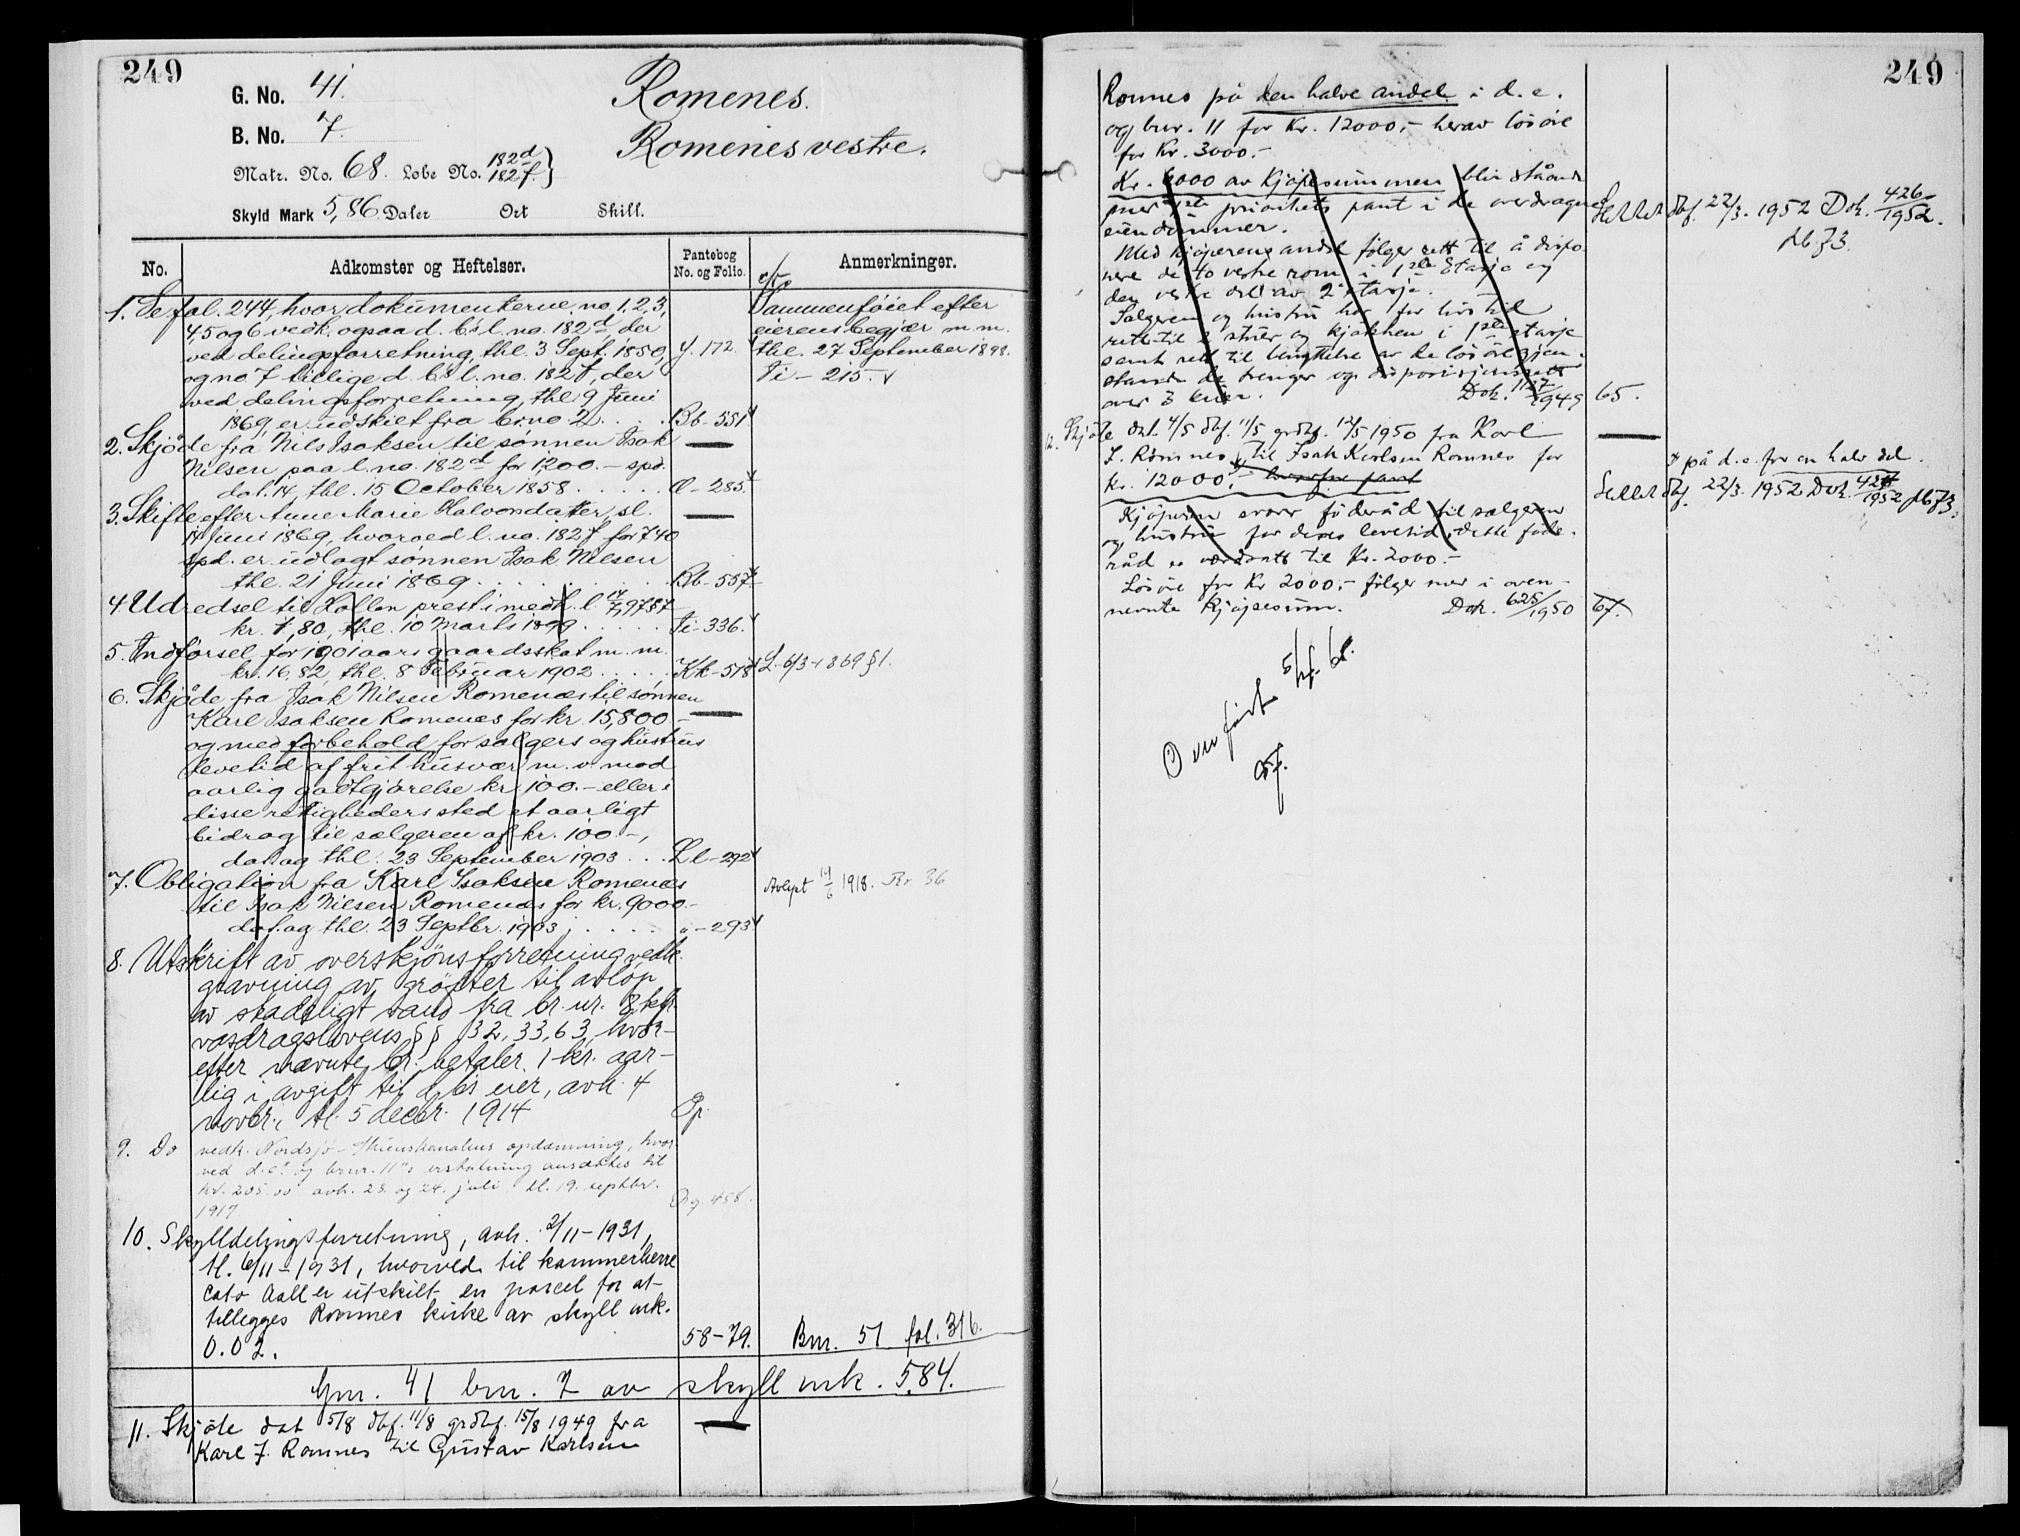 249
G. No. 41.
B. No. 7.
Matr. No. 68. Løbe No. 182d
182f. }
Skyld Mark 5,86 Daler Ort Skill.
Romenes.
Romenes vestre.
No.
Adkomster og Heftelser.
Pantebog
No. og Folio.
Anmerkninger.
1. Se fol. 244, hvor dokumenterne no. 1, 2, 3,
4, 5 og 6 vedk. ogsaa d. b's l. no. 182d, der
ved delingsforretning, thl. 3 Sept. 1850, y. 172.
og no. 7 tillige d. b's l. no. 182f, der
ved delingsforretning, thl. 9 Juni
1869, er udskilt fra b. no 2 . . . Bb - 551
Sammenføiet efter
eierens begjær m. m.
thl. 27 September 1898.
Ti - 215.
2. Skjøde fra Nils Isaksen til sønnen Isak
Nilsen paa l. no. 182d for 1200.- spd.
dat. 14, thl. 15 October 1858 . . . . . Ø - 285.
3. Skifte efter Anne Marie Halvorsdatter, sl.
14 Juni 1869, hvorved l. no. 182f for 740
spd. er udlagt sønnen Isak Nilsen
thl. 21 Juni 1869 . . . . . . . Bb - 557
4. Udredsel til Hollen præsti medh. l. 14/7 97 § 7
kr. 1,80, thl. 10 Marts 1899 . . . . . Ti - 336.
5. Indførsel for 1901 aars gaardsskat m. m.
kr. 16,82, thl. 8 Februar 1902 . . . . Kk - 518 L. 6/3 - 1869 § 1.
6. Skjøde fra Isak Nilsen Romenæs til sønnen
Karl Isaksen Romenæs for kr. 15,800.-
og med forbehold for sælgers og hustrus
levetid af frit husvær m. v. mod
aarlig godtgjørelse kr. 100.- eller i
disse rettigheders sted et aarligt
bidrag til sælgeren af kr. 100.-,
dat. og thl. 23 September 1903 . . . Ll - 292
7. Obligation fra Karl Isaksen Romenæs
til Isak Nilsen Romenæs for kr. 9000.-
dat. og thl. 23 Septbr. 1903 . . . . . " - 293
Avlyst 14/6 1918. Rr 36
8. Utskrift av overskjønsforretning vedk.
gravning av grøfter til avløp
av skadeligt vand fra br. nr. 8 kfr.
vasdragslovens §§ 32, 33, 63, hvor-
efter nævnte br. betaler 1 kr. aar-
lig i avgift til d. b's eier, avh. 4
novbr., tl. 5 decbr. 1914 Qp.
9. Do vedk. Nordsjø - Skienskanalens opdæmning, hvor-
ved d. e.s og brnr. 11's erstatning ansættes til
kr. 205.00 avh. 23. og 24. juli, tl. 19. septbr.
1917 Qq. 458.
10. Skylldelingsforretning, avh. 2/11 - 1931,
tl. 6/11 - 1931, hvorved til kammerherre
Cato Aall er utskilt en parcel for at
tillegges Romnes kirke av skyll mk.
0.02. 58 - 79. Bnr. 51 fol. 316.
Gnr. 41 bnr. 7 av skyll mk. 5.84.
11. Skjøte dat 5/8 dbf. 11/8 grdbf. 15/8 1949 fra
Karl I. Romnes til Gustav Karlsen
249
Romnes på den halve andel i d. e.
og bnr. 11 for kr. 12000,- herav løsøre
for kr. 3000.-
Kr. 6000 av kjøpesummen blir stående
mot 1ste prioritets pant i de overdragne
eiendommer.
Slettet dbf. 22/3. 1952 Dok. 426/1952.
Pb. 73.
Med kjøperens andel følger rett til å dispo-
nere de to vestre rom i 1ste Etasje og
den vestre del av 2 etasje.
Selgeren og hustru har for livstid
rett til 2 stuer og kjøkken i 1ste etasje
samt rett til benyttelse av de løsøregjen-
stander de trenger og disposisjonsrett
over 3 kuer. Dok. 1127/1949 65.
12. Skjøte dat. 4/5 dbf. 11/5 grdbf. 12/5 1950 fra Karl
I. Romnes til Isak Karlsen Romnes for
kr. 12000.- hvorfor pant
x på d. e. for en halv del.
Slettet dbf. 22/3. 1952 Dok. 427/1952 Pb 73.
Kjøperen svarer føderåd til selgeren
og hustru for deres levetid, dette føde-
råd er verdsatt til Kr. 2000.-
Løsøre for Kr 2000.- følger med i oven-
nevnte kjøpesum. Dok. 625/1950 67.
Overført 5/4. 68.